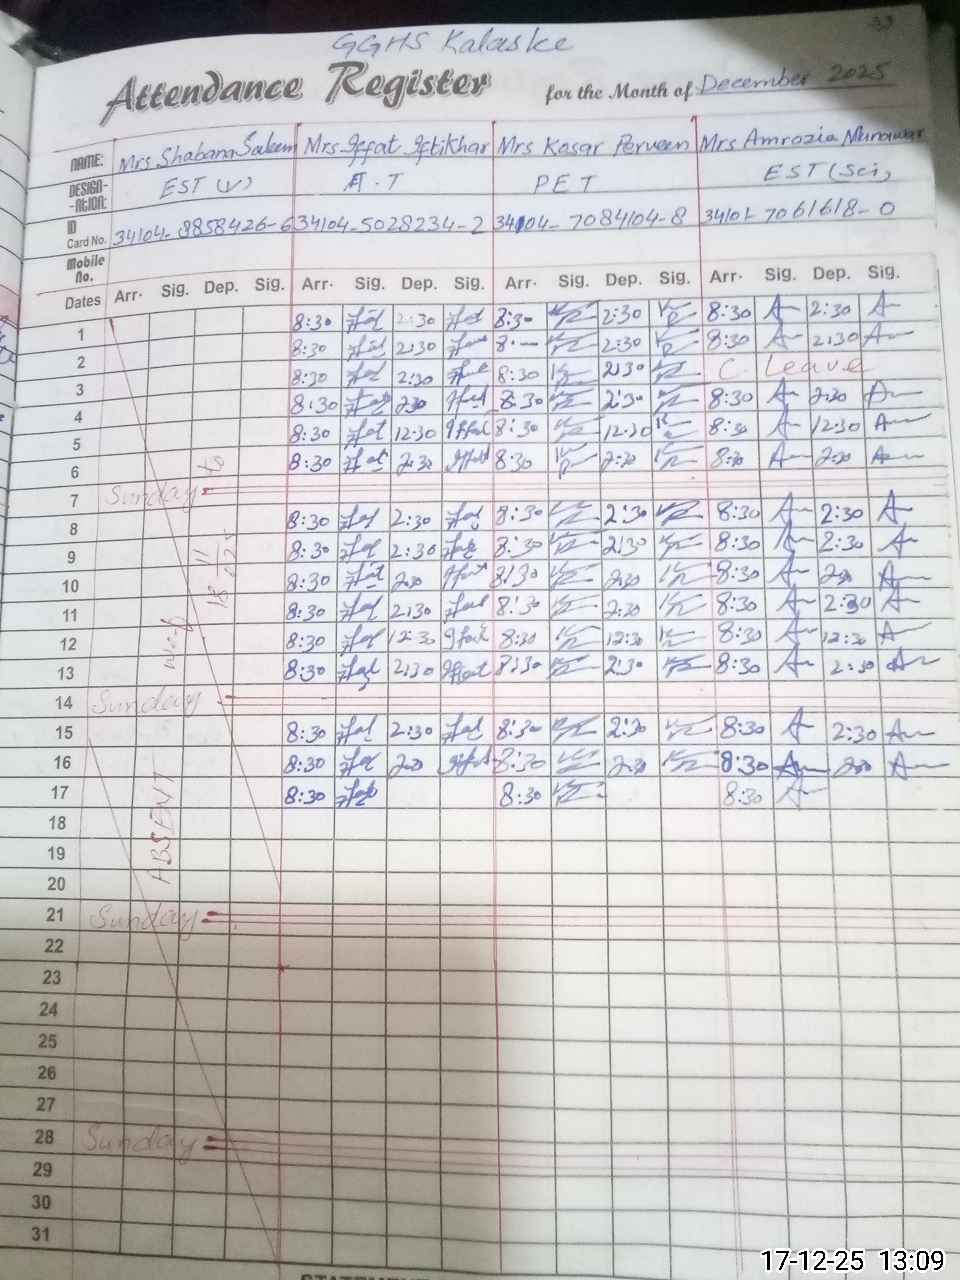 33
GGHS Kalaske
Attendance Register for the Month of December 2025
NAME: Mrs Shabana Saleem Mrs Iffat Iftikhar Mrs Kosar Perveen Mrs Amrozia Munawar
DESIGN-ATION: EST (V) A.T PET EST (Sci)
ID Card No. 34104-8858426-6 34104-5028234-2 34104-7084104-8 34101-7061618-0
Mobile No.
Dates Arr. Sig. Dep. Sig. Arr. Sig. Dep. Sig. Arr. Sig. Dep. Sig. Arr. Sig. Dep. Sig.
1 8:30 2:30 8:30 2:30 8:30 2:30
2 8:30 2:30 8:— 2:30 8:30 2:30
3 8:30 2:30 8:30 2:30 C. Leave
4 8:30 2:30 8:30 2:30 8:30 2:30
5 8:30 12:30 8:30 12:30 8:30 12:30
6 8:30 2:30 8:30 2:30 8:30 2:30
7 Sunday
8 8:30 2:30 8:30 2:30 8:30 2:30
9 8:30 2:30 8:30 2:30 8:30 2:30
10 8:30 2:30 8:30 2:30 8:30 2:30
11 8:30 2:30 8:30 2:30 8:30 2:30
12 8:30 12:30 8:30 12:30 8:30 12:30
13 8:30 2:30 8:30 2:30 8:30 2:30
14 Sunday
15 8:30 2:30 8:30 2:30 8:30 2:30
16 8:30 2:30 8:30 2:30 8:30 2:30
17 8:30 8:30 8:30
18
19
20
21 Sunday
22
23
24
25
26
27
28 Sunday
29
30
31
ABSENT w.e.f 18 11 2025 to
17-12-25 13:09